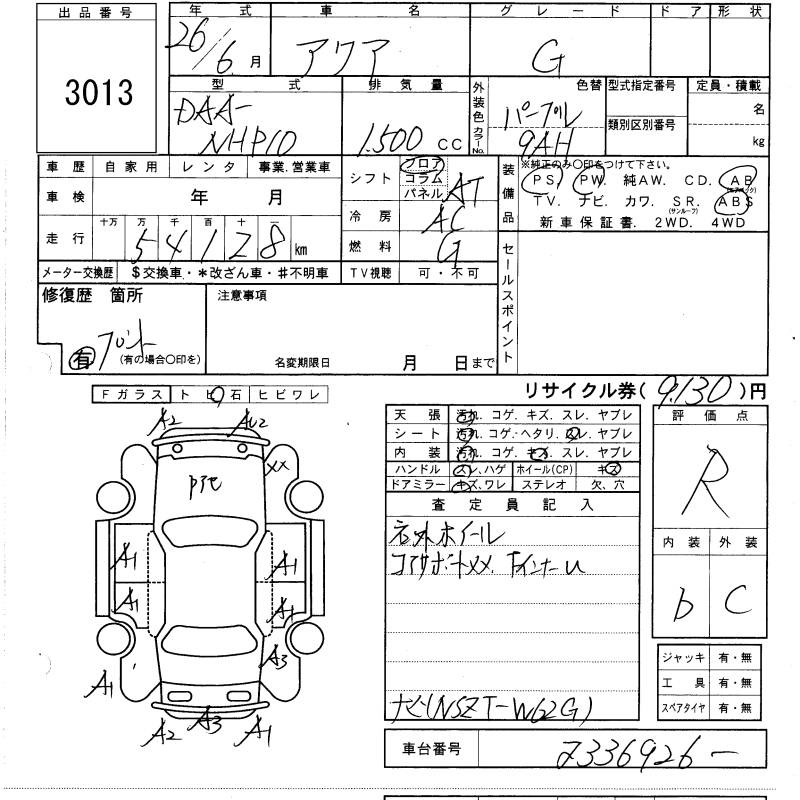 出品番号 年式 車名 グレード ドア 形状
3013 26/6月 アクア G
型式 排気量 外装色 カラーNo. 色替 型式指定番号 定員・積載
DAA-NHP10 1500 CC パープル 9AH 類別区別番号 名 kg
車歴 自家用 レンタ 事業.営業車
車検 年 月
走行 十万 万 千 百 十 一
54128 km
シフト フロア コラム パネル AT
冷房 AC
燃料 G
装備品 ※純正のみ〇印をつけて下さい。
PS. PW. 純AW. CD. AB(エアバック)
TV. ナビ. カワ. SR.(サンルーフ) ABS
新車保証書. 2WD. 4WD
メーター交換歴 $交換車・*改ざん車・#不明車 TV視聴 可・不可
セールスポイント
修復歴 箇所 注意事項
有 フロント
(有の場合〇印を) 名変期限日 月 日まで
Fガラス トビ石 ヒビワレ
リサイクル券( 9,130 )円
A2 AU2
XX
A1 A1
A1 A1
A3
A1
A2 A3 A1
天張 汚れ. コゲ. キズ. スレ. ヤブレ
シート 汚れ. コゲ・ヘタリ. スレ. ヤブレ
内装 汚れ. コゲ. キズ. スレ. ヤブレ
ハンドル スレ. ハゲ ホイール(CP) キズ
ドアミラー キズ. ワレ ステレオ 欠、穴
査定員記入
社外ホイール
コアサポートXX. FインナーU
ナビ(NSZT-W62G)
評価点
R
内装 外装
b C
ジャッキ 有・無
工具 有・無
スペアタイヤ 有・無
車台番号 2336926-